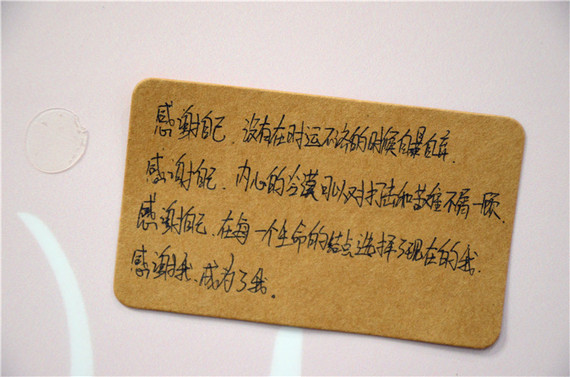 感谢自己，没有在时运不济的时候自暴自弃.
感谢自己，内心的冷漠可以对打击和苦难不屑一顾.
感谢自己，在每一个生命的结点选择了现在的我.
感谢我，成为了我。